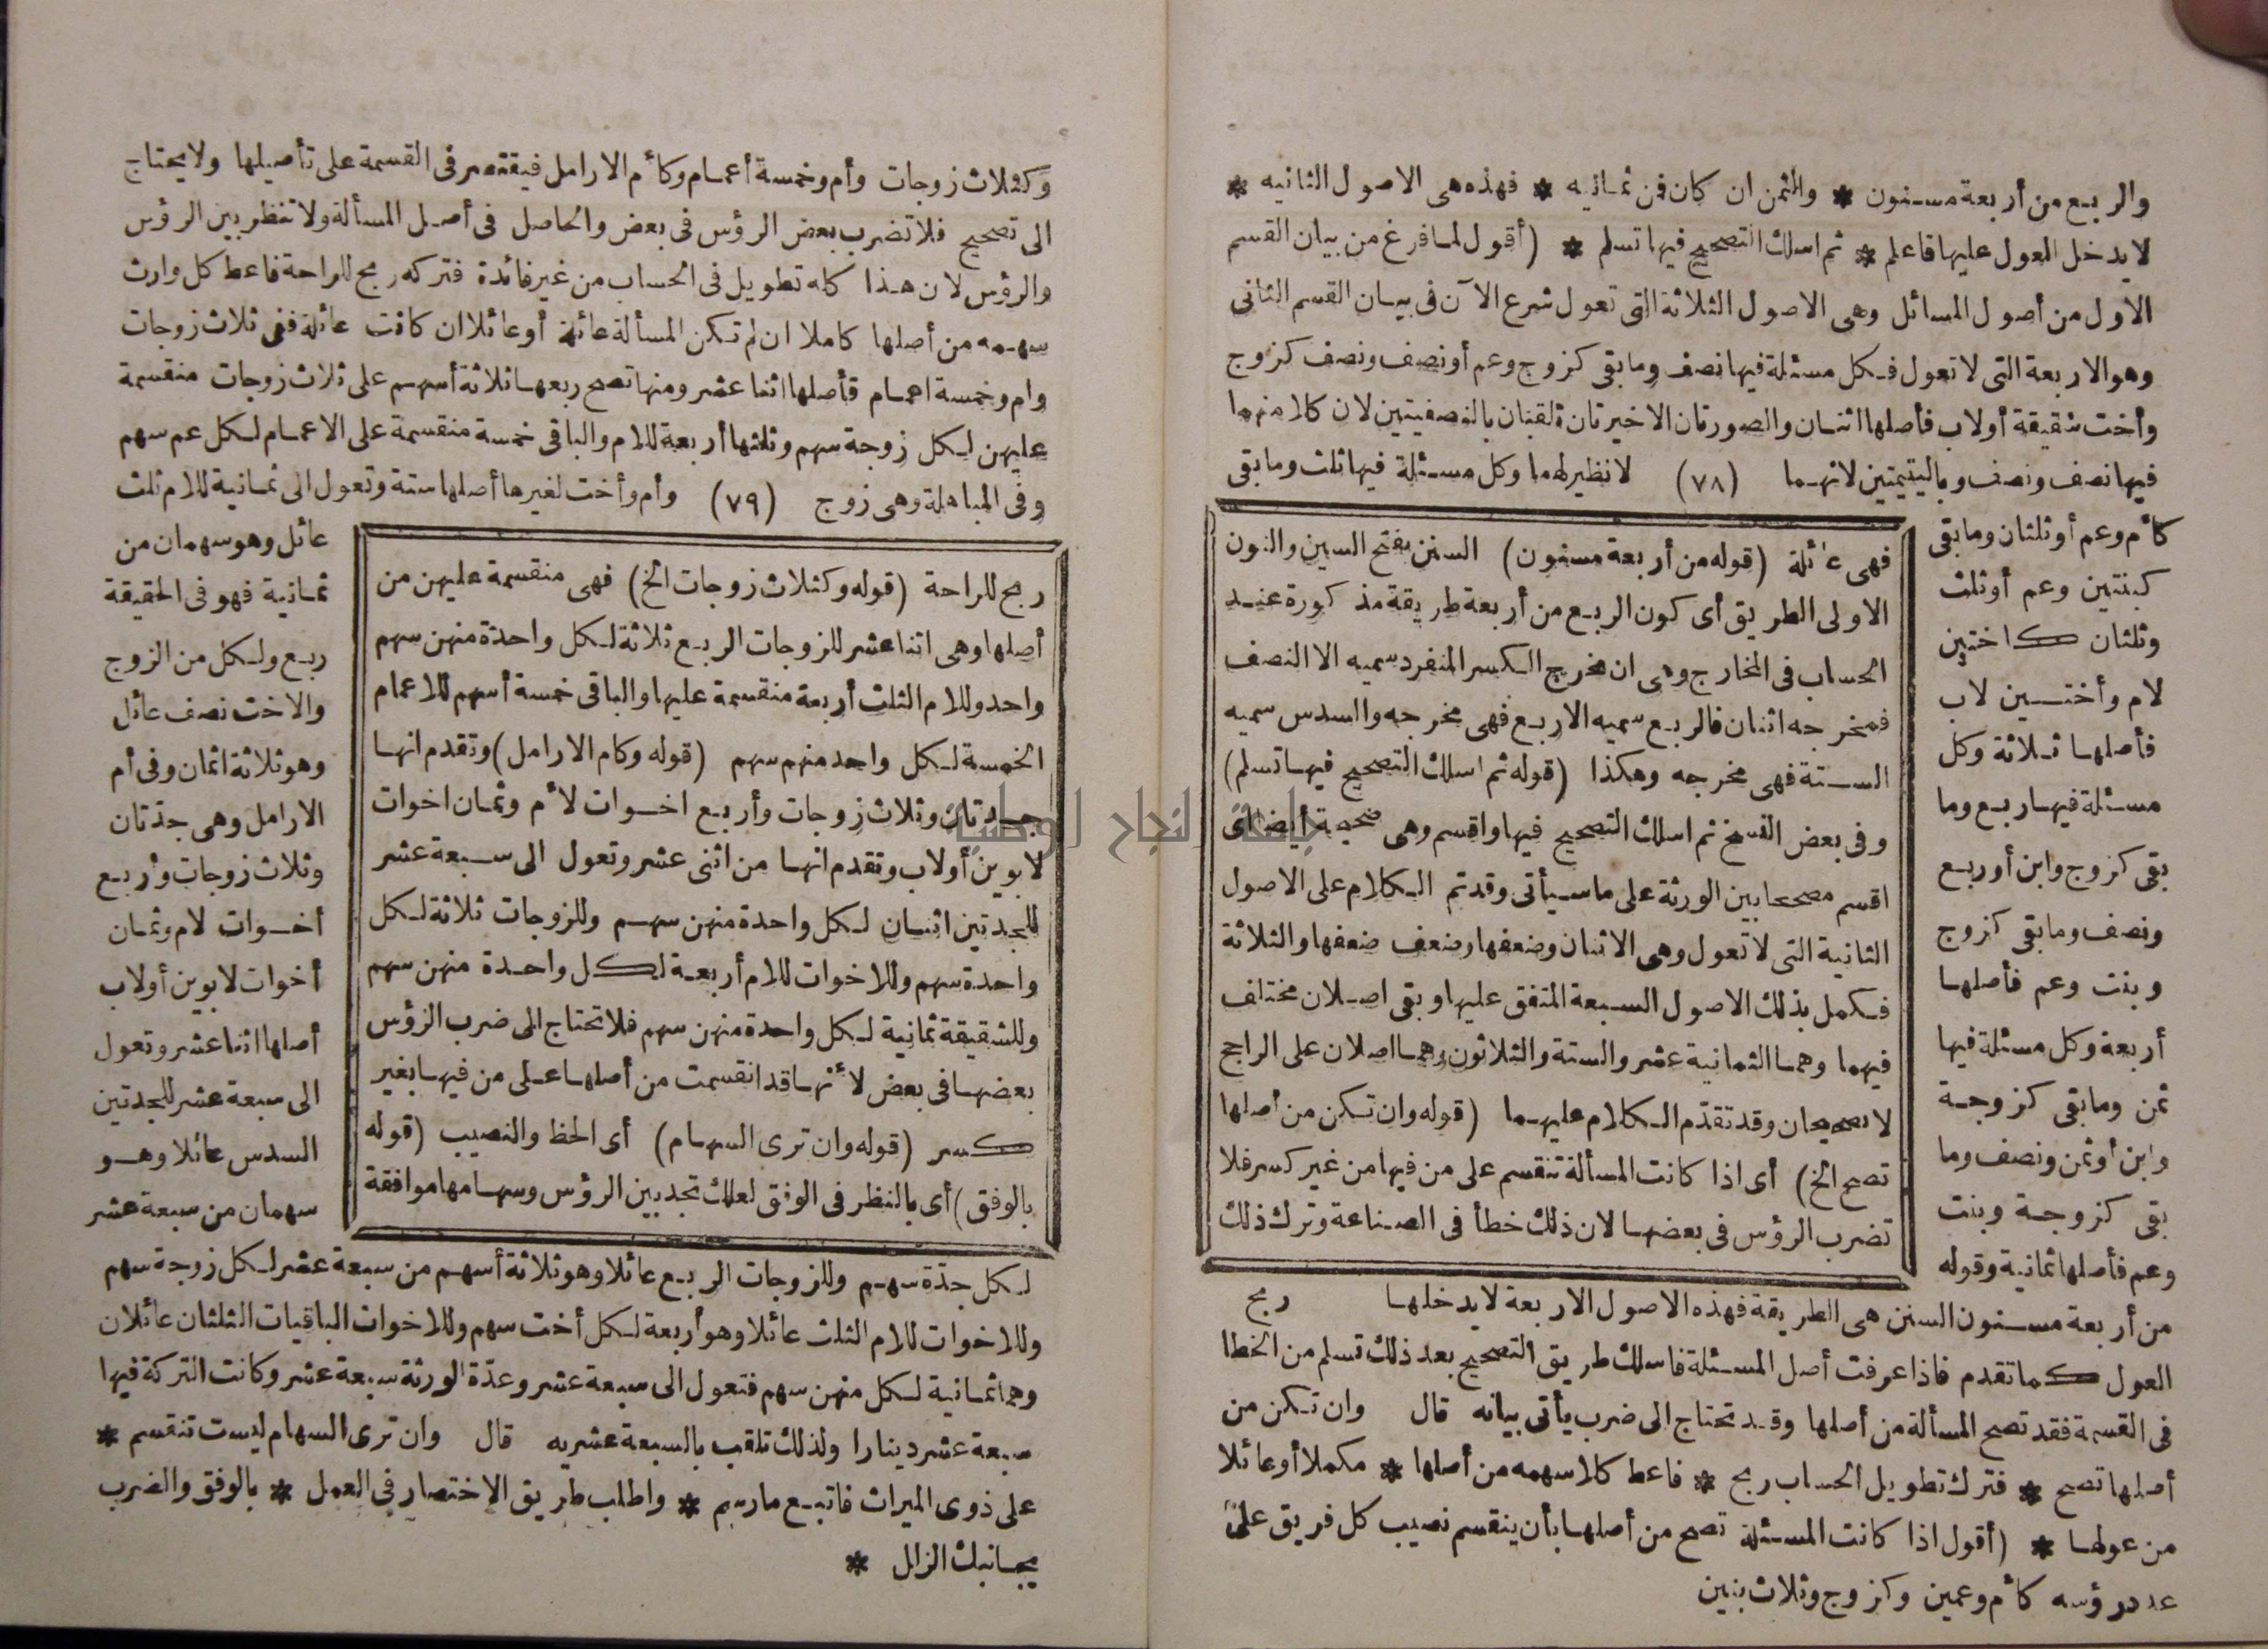 والربع من أربعة مسنون * والثمن ان كان فمن ثمانيه * فهذه هى الاصول الثانيه *
لا يدخل العول عليها فاعلم * ثم اسلك التصحيح فيها تسلم * (أقول لما فرغ من بيان القسم
الاول من أصول المسائل وهى الاصول الثلاثة التى تعول شرع الآن فى بيان القسم الثانى
وهو الاربعة التى لا تعول فكل مسئلة فيها نصف وما بقى كزوج وعم أو نصف ونصف كزوج
وأخت شقيقة أولاب فأصلها اثنان والصورتان الاخيرتان تلقبان بالنصفيتين لان كلا منهما
فيها نصف ونصف وباليتيمتين لانهما (٧٨) لا نظير لهما وكل مسئلة فيها ثلث وما بقى
كأم وعم أو ثلثان وما بقى
كبنتين وعم أو ثلث
وثلثان كاختين
لام وأختين لاب
فأصلها ثلاثة وكل
مسئلة فيها ربع وما
بقى كزوج وابن أو ربع
ونصف وما بقى كزوج
وبنت وعم فأصلها
أربعة وكل مسئلة فيها
ثمن وما بقى كزوجة
وابن أو ثمن ونصف وما
بقى كزوجة وبنت
وعم فأصلها ثمانية وقوله
من أربعة مسنون السنن هى الطريقة فهذه الاصول الاربعة لا يدخلها
العول كما تقدم فاذا عرفت أصل المسئلة فاسلك طريق التصحيح بعد ذلك تسلم من الخطا
فى القسمة فقد تصح المسألة من أصلها وقد تحتاج الى ضرب يأتى بيانه قال وان تكن من
أصلها تصح * فترك تطويل الحساب ربح * فاعط كلا سهمه من أصلها * مكملا أو عائلا
من عولها * (أقول اذا كانت المسئلة تصح من أصلها بأن ينقسم نصيب كل فريق على
عدد رؤسه كأم وعمين وكزوج وثلاث بنين
فهى عائلة (قوله من أربعة مسنون) السنن بفتح السين والنون
الاولى الطريق أى كون الربع من أربعة طريقة مذكورة عند
الحساب فى المخارج وهى ان مخرج الكسر المنفرد سميه الا النصف
فمخرجه اثنان فالربع سميه الاربع فهى مخرجه والسدس سميه
الستة فهى مخرجه وهكذا (قوله ثم اسلك التصحيح فيها تسلم)
وفى بعض النسخ ثم اسلك التصحيح فيها واقسم وهى صحيحة أيضا أى
اقسم مصححا بين الورثة على ما سيأتى وقد تم الكلام على الاصول
الثانية التى لا تعول وهى الاثنان وضعفها وضعف ضعفها والثلاثة
فكمل بذلك الاصول السبعة المتفق عليها وبقى اصلان مختلف
فيهما وهما الثمانية عشر والستة والثلاثون وهما اصلان على الراجح
لا تصحيحان وقد تقدّم الكلام عليهما (قوله وان تكن من أصلها
تصح الخ) أى اذا كانت المسألة تنقسم على من فيها من غير كسر فلا
تضرب الرؤس فى بعضها لان ذلك خطأ فى الصناعة وترك ذلك
ربح
وكثلاث زوجات وأم وخمسة أعمام وكأم الارامل فيقتصر فى القسمة على تأصيلها ولا يحتاج
الى تصحيح فلا تضرب بعض الرؤس فى بعض والحاصل فى أصل المسألة ولا تنظر بين الرؤس
والرؤس لان هذا كله تطويل فى الحساب من غير فائدة فتركه ربح للراحة فاعط كل وارث
سهمه من أصلها كاملا ان لم تكن المسألة عائلة أو عائلا ان كانت عائلة ففى ثلاث زوجات
وام وخمسة اعمام فأصلها اثنا عشر ومنها تصح ربعها ثلاثة أسهم على ثلاث زوجات منقسمة
عليهن لكل زوجة سهم وثلثها أربعة للام والباقى خمسة منقسمة على الاعمام لكل عم سهم
وفى المباهلة وهى زوج (٧٩) وأم وأخت لغيرها أصلها ستة وتعول الى ثمانية للام ثلث
عائل وهو سهمان من
ثمانية فهو فى الحقيقة
ربع ولكل من الزوج
والاخت نصف عائل
وهو ثلاثة اثمان وفى أم
الارامل وهى جدّتان
وثلاث زوجات وأربع
أخوات لام وثمان
أخوات لابوين أولاب
أصلها اثنا عشر وتعول
الى سبعة عشر للجدتين
السدس عائلا وهو
سهمان من سبعة عشر
لكل جدّة سهم وللزوجات الربع عائلا وهو ثلاثة أسهم من سبعة عشر لكل زوجة سهم
وللاخوات للام الثلث عائلا وهو أربعة لكل أخت سهم وللاخوات الباقيات الثلثان عائلان
وهما ثمانية لكل منهن سهم فتعول الى سبعة عشر وعدّة الورثة سبعة عشر وكانت التركة فيها
سبعة عشر دينارا ولذلك تلقب بالسبعة عشريه قال وان ترى السهام ليست تنقسم *
على ذوى الميراث فاتبع ما رسم * واطلب طريق الاختصار فى العمل * بالوفق والضرب
يجانبك الزلل *
ربح للراحة (قوله وكثلاث زوجات الخ) فهى منقسمة عليهن من
أصلها وهى اثنا عشر للزوجات الربع ثلاثة لكل واحدة منهن سهم
واحد وللام الثلث أربعة منقسمة عليها والباقى خمسة أسهم للاعمام
الخمسة لكل واحد منهم سهم (قوله وكام الارامل) وتقدم انها
جدتان وثلاث زوجات وأربع اخوات لأم وثمان اخوات
لابوين أولاب وتقدم انها من اثنى عشر وتعول الى سبعة عشر
للجدتين اثنان لكل واحدة منهن سهم وللزوجات ثلاثة لكل
واحدة سهم وللاخوات للام أربعة لكل واحدة منهن سهم
وللشقيقة ثمانية لكل واحدة منهن سهم فلا تحتاج الى ضرب الرؤس
بعضها فى بعض لأنها قد انقسمت من أصلها على من فيها بغير
كسر (قوله وان ترى السهام) أى الحظ والنصيب (قوله
بالوفق) أى بالنظر فى الوفق لعلك تجد بين الرؤس وسهامها موافقة
جامعة النجاح الوطنية